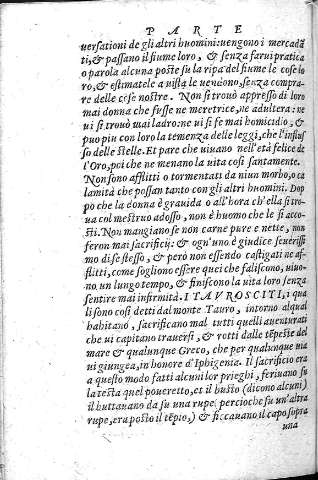 PARTE
uersationi de gli altri huomini: uengono i mercadã
ti, & passano il fiume loro, & senza farui pratica
o parola alcuna poste su la ripa del fiume le cose lo
ro, & estimatele a uista le uendono, senza compra-
re delle cose nostre. Non si trouò appresso di loro
mai donna che fusse ne meretrice, ne adultera: ne
ui si trouò mai ladro: ne ui si fe mai homicidio, &
puo piu con loro la temenza delle leggi, che l'influs
so delle stelle. Et pare che uiuano nell'età felice de
l'Oro, poi che ne menano la uita cosi santamente.
Non sono afflitti o tormentati da niun morbo, o ca
lamità che possan tanto con gli altri huomini. Dop
pò che la donna è grauida o all'hora ch'ella si tro-
ua col mestruo adosso, non è huomo che le si acco-
sti. Non mangiano se non carne pure e nette, non
feron mai sacrificij: & ogn'uno è giudice seuerissi
mo di se stesso, & però non essendo castigati ne af-
flitti, come sogliono essere quei che faliscono, uiuo-
no un lungo tempo, & finiscono la uita loro senza
sentire mai infirmità. I TAVROSCITI, i qua
li sono cosi detti dal monte Tauro, intorno al qual
habitano, sacrificano mal tutti quelli auenturati
che ui capitano trauersi, & rotti dalle tẽpeste del
mare & qualunque Greco, che per qualunque uia
ui giungea, in honore d'Iphigenia. Il sacrificio era
a questo modo fatti alcuni lor prieghi, feriuano su
la testa quel poueretto, et il busto (dicono alcuni)
il buttauano da su una rupe (percioche su un'altra
rupe, era posto il tẽpio,) & ficcauano il capo sopra
una